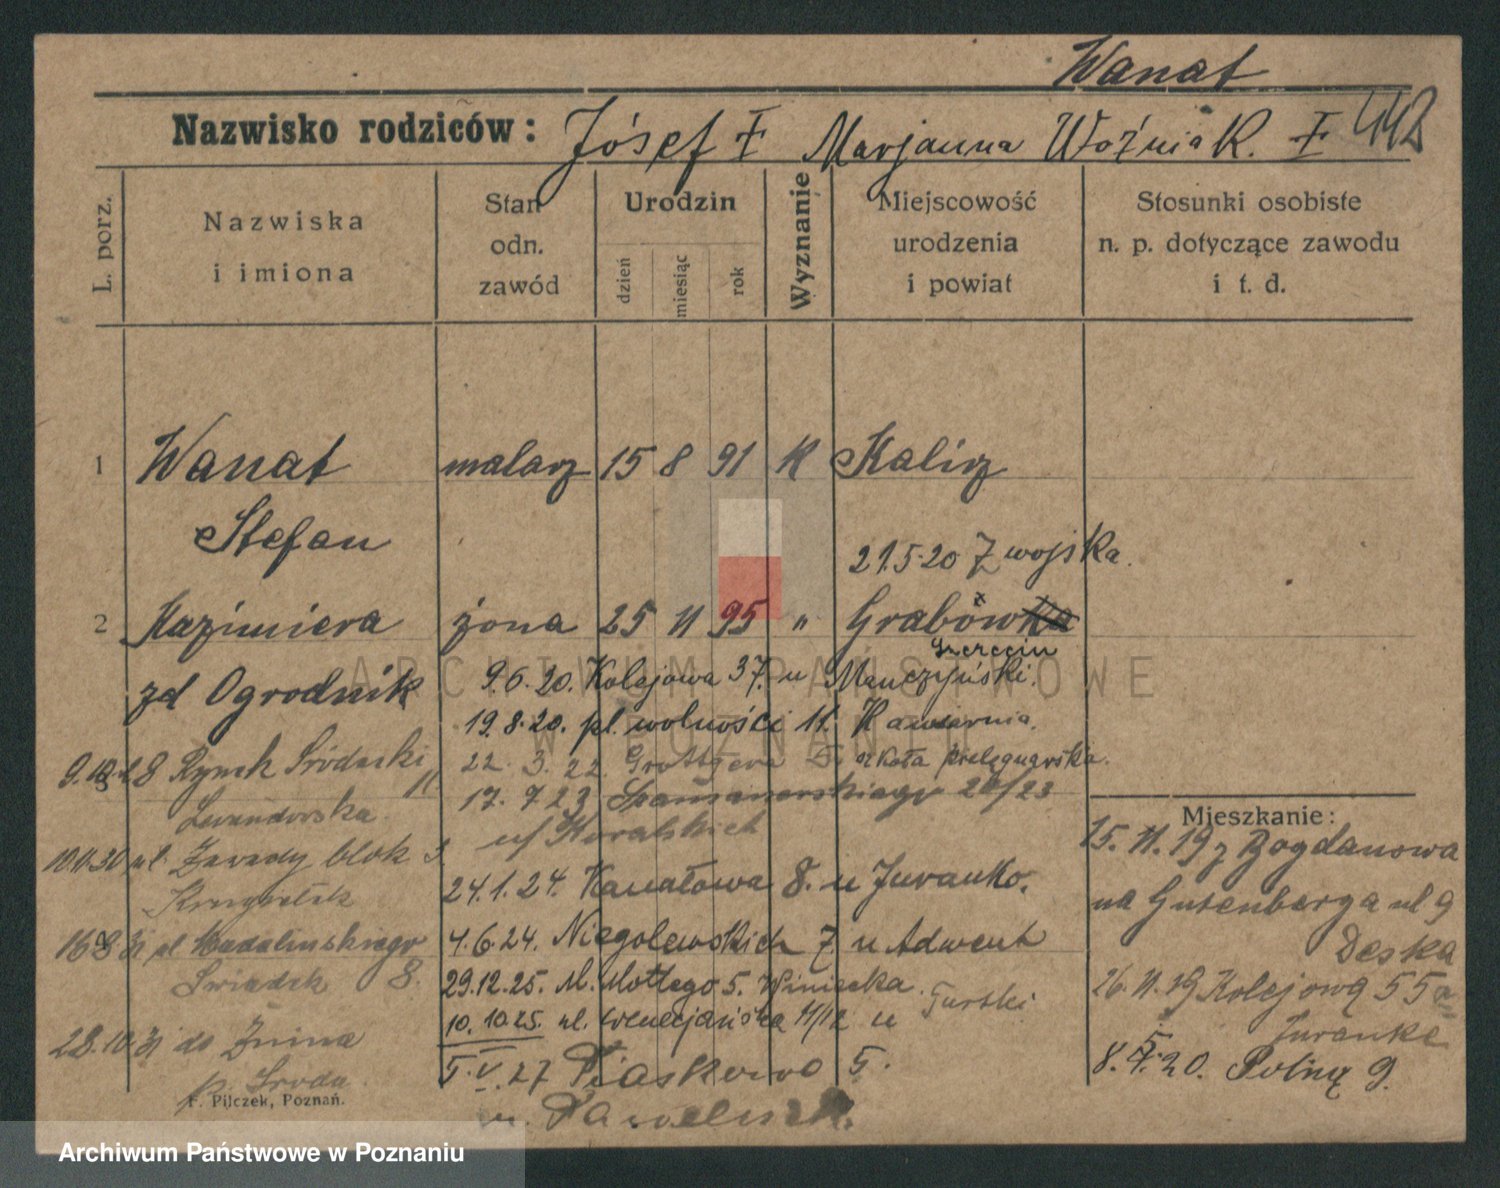 Wanat
Nazwisko rodziców: Józef † Marjanna Woźniak. †
L. porz.
Nazwiska i imiona
Stan odn. zawód
Urodzin
dzień
miesiąc
rok
Wyznanie
Miejscowość urodzenia i powiat
Stosunki osobiste n. p. dotyczące zawodu i t. d.
1 Wanat malarz 15 8 91 K Kalisz
Stefan
21.5.20 Z wojska.
2 Kazimiera żona 25 11 95 " Grabów
zd Ogrodnik
9.6.20. Kolejowa 37. u Manczyński.
19.8.20. pl. wolności 11. Kawiarnia.
22. 3. 22. Grottgera 5. szkoła pielęgniarska.
17. 9 23 Szamarzewskiego 20/23
u/ Kowalskich
24.1.24. Kanałowa 8. u Juranko.
4.6.24. Niegolewskich 7. u Adwent
29.12.25. M. Mottego 5. Winiecka.
10.10.25. ul. Wenecjańska 11/12 u Turski
5.V.27 Piaskowo 5.
8 Rynek Śródecki 11
Lewandowska
10.11.30 ul. Zawady blok 3
ul Madalińskiego 8.
Świadek
28.10.31 do Żnina
p. Środa.
F. Pilczek, Poznań.
Mieszkanie:
15. 11. 19 z Bogdanowa
na Gutenberga ul 9
Deska
26.11.19 Kolejowa 55a
Juranke
8. 5. 20. Polną 9.
ARCHIWUM PAŃSTWOWE
W POZNANIU
Archiwum Państwowe w Poznaniu